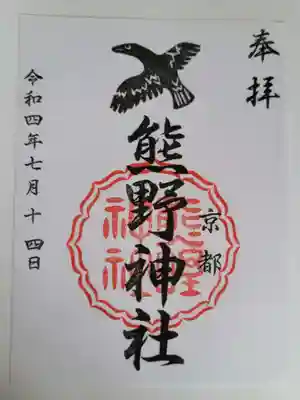 奉拝
京都
熊野神社
令和四年七月十四日